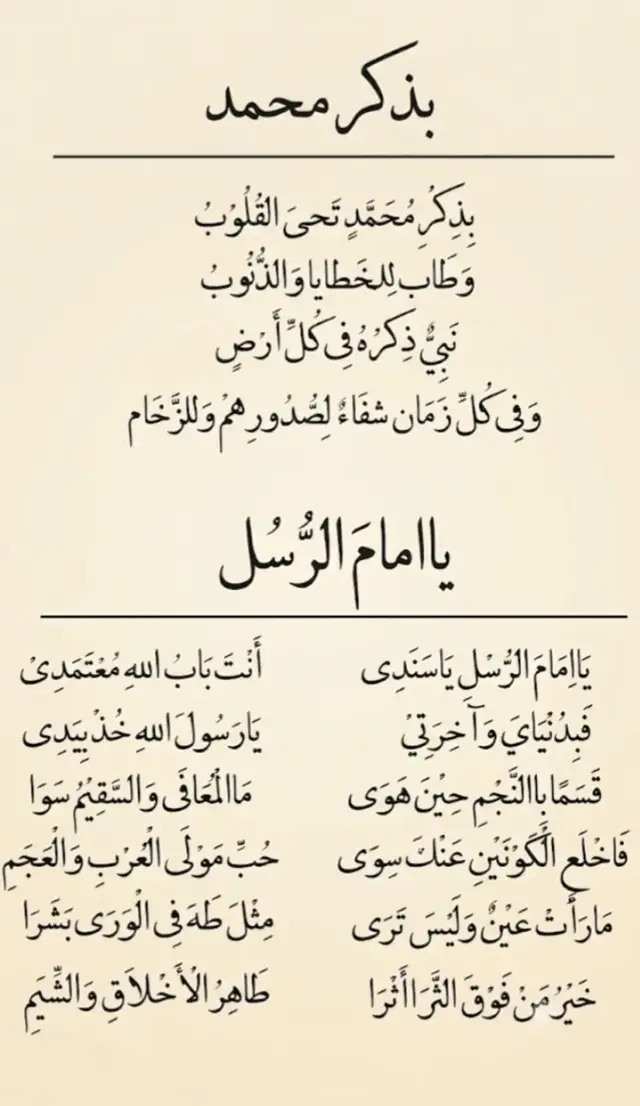 بذكر محمد
بِذِكُرِ مُحَمَّدٍ تَحىَ القُلُوْبُ
وَطَاب لِلخَطايا وَالذُّنُوبُ
نَبِيٌّ ذِكرُهُ فِى كُلِّ أَرْضٍ
وَفِى كُلِّ زَمَان شفَاءٌ لِصُّدُورِهِمْ وَللزَّخَام
يا امامَ الرُّسُل
يَااِمَامَ الرُّسْلِ يَاسَنَدِى أَنْتَ بَابُ اللهِ مُعْتَمَدِىْ
فَبِدُنْيَايَ وَآخِرَتِيْ يَارَسُولَ اللهِ خُذْ بِيَدِى
قَسَمًا بِاالنَّجْمِ حِيْنَ هَوَى مَاالْمُعَافَى وَالسَّقِيْمُ سَوَا
فَاخْلَعِ الْكَوْنَيْنِ عَنْكَ سِوَى حُبِّ مَوْلَى الْعُرْبِ وَالْعَجَمِ
مَارَأَتْ عَيْنٌ وَلَيْسَ تَرَى مِثْلَ طَهَ فِى الْوَرَى بَشَرَا
خَيْرُ مَنْ فَوْقَ الثَّرَا أَثْرَا طَاهِرُ الْأَخْلاَقِ وَالشِّيَمِ